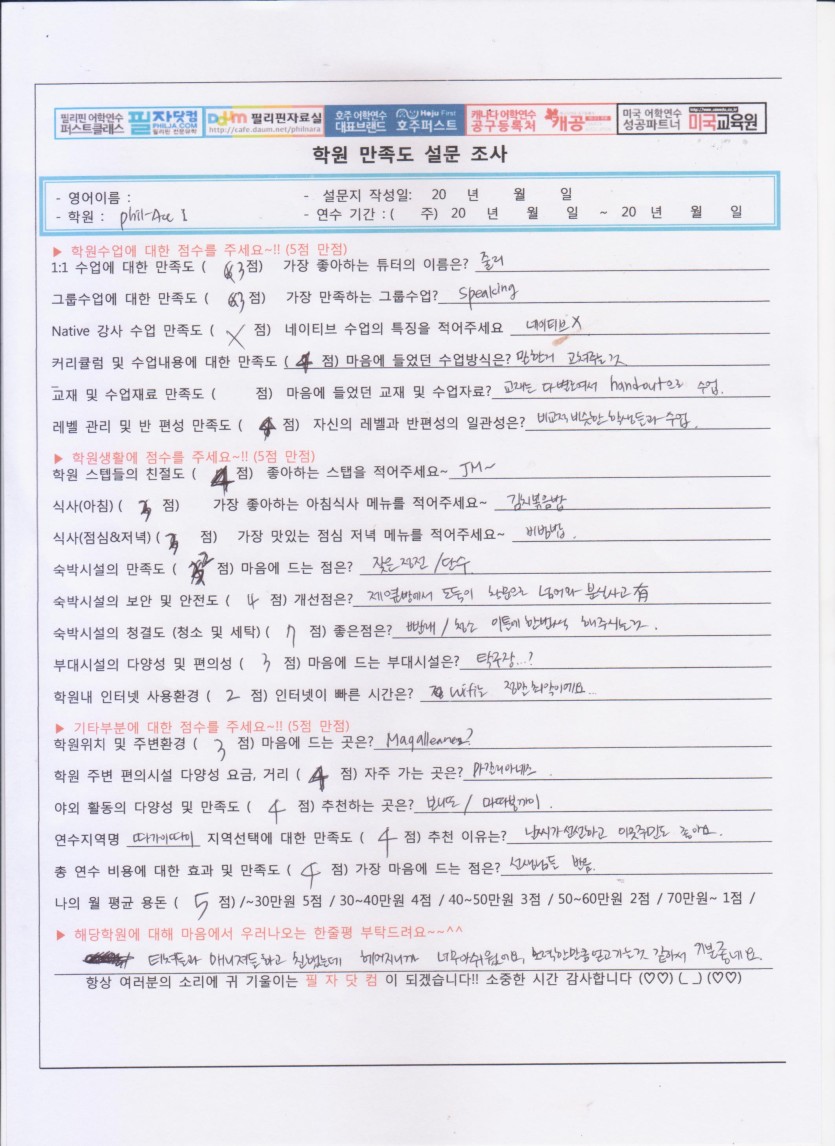 필리핀 어학연수 퍼스트클래스 필자닷컴 PHILJA.COM 필리핀 전문유학 Daum 필리핀자료실 http://cafe.daum.net/philnara 호주 어학연수 대표브랜드 Hoju First 호주퍼스트 캐나다 어학연수 공구등록처 캐공 미국 어학연수 성공파트너 미국교육원
학원 만족도 설문 조사
- 영어이름 : - 설문지 작성일: 20 년 월 일
- 학원 : phil-Ace I - 연수 기간 : ( 주) 20 년 월 일 ~ 20 년 월 일
▶ 학원수업에 대한 점수를 주세요~!! (5점 만점)
1:1 수업에 대한 만족도 ( 3 점) 가장 좋아하는 튜터의 이름은? 줄리
그룹수업에 대한 만족도 ( 3 점) 가장 만족하는 그룹수업? Speaking
Native 강사 수업 만족도 ( X 점) 네이티브 수업의 특징을 적어주세요 네이티브 X
커리큘럼 및 수업내용에 대한 만족도 ( 4 점) 마음에 들었던 수업방식은? 말한거 고쳐주는것
교재 및 수업재료 만족도 ( 점) 마음에 들었던 교재 및 수업자료? 교재는 다 별로여서 handout으로 수업.
레벨 관리 및 반 편성 만족도 ( 4 점) 자신의 레벨과 반편성의 일관성은? 비교적 비슷한 학생들과 수업.
▶ 학원생활에 점수를 주세요~!! (5점 만점)
학원 스텝들의 친절도 ( 4 점) 좋아하는 스탭을 적어주세요~ JM~
식사(아침) ( 3 점) 가장 좋아하는 아침식사 메뉴를 적어주세요~ 김치볶음밥
식사(점심&저녁) ( 3 점) 가장 맛있는 점심 저녁 메뉴를 적어주세요~ 비빔밥.
숙박시설의 만족도 ( 2 점) 마음에 드는 점은? 잦은 정전 / 단수.
숙박시설의 보안 및 안전도 ( 4 점) 개선점은? 제 옆방에서 도둑이 창문으로 넘어와 분실사고 有
숙박시설의 청결도 (청소 및 세탁) ( 점) 좋은점은? 빨래 / 청소 이틀에 한번씩 해주시는것.
부대시설의 다양성 및 편의성 ( 3 점) 마음에 드는 부대시설은? 탁구장...?
학원내 인터넷 사용환경 ( 2 점) 인터넷이 빠른 시간은? wifi는 정말 최악이에요...
▶ 기타부분에 대한 점수를 주세요~!! (5점 만점)
학원위치 및 주변환경 ( 3 점) 마음에 드는 곳은? Magallanes?
학원 주변 편의시설 다양성 요금, 거리 ( 4 점) 자주 가는 곳은? 마갈리아네즈.
야외 활동의 다양성 및 만족도 ( 4 점) 추천하는 곳은? 보니또 / 마따붕까이.
연수지역명 따가이따이 지역선택에 대한 만족도 ( 4 점) 추천 이유는? 날씨가 선선하고 이웃주민도 좋아요.
총 연수 비용에 대한 효과 및 만족도 ( 4 점) 가장 마음에 드는 점은? 선생님들
나의 월 평균 용돈 ( 5 점) /~30만원 5점 / 30~40만원 4점 / 40~50만원 3점 / 50~60만원 2점 / 70만원~ 1점 /
▶ 해당학원에 대해 마음에서 우러나오는 한줄평 부탁드려요~~^^
티쳐들과 매니져들하고 친했는데 헤어지니까 너무아쉬웠어요, 노력한만큼 얻고가는것 같아서 기분좋네요.
항상 여러분의 소리에 귀 기울이는 필 자 닷 컴 이 되겠습니다!! 소중한 시간 감사합니다 (♡♡) (_ _) (♡♡)